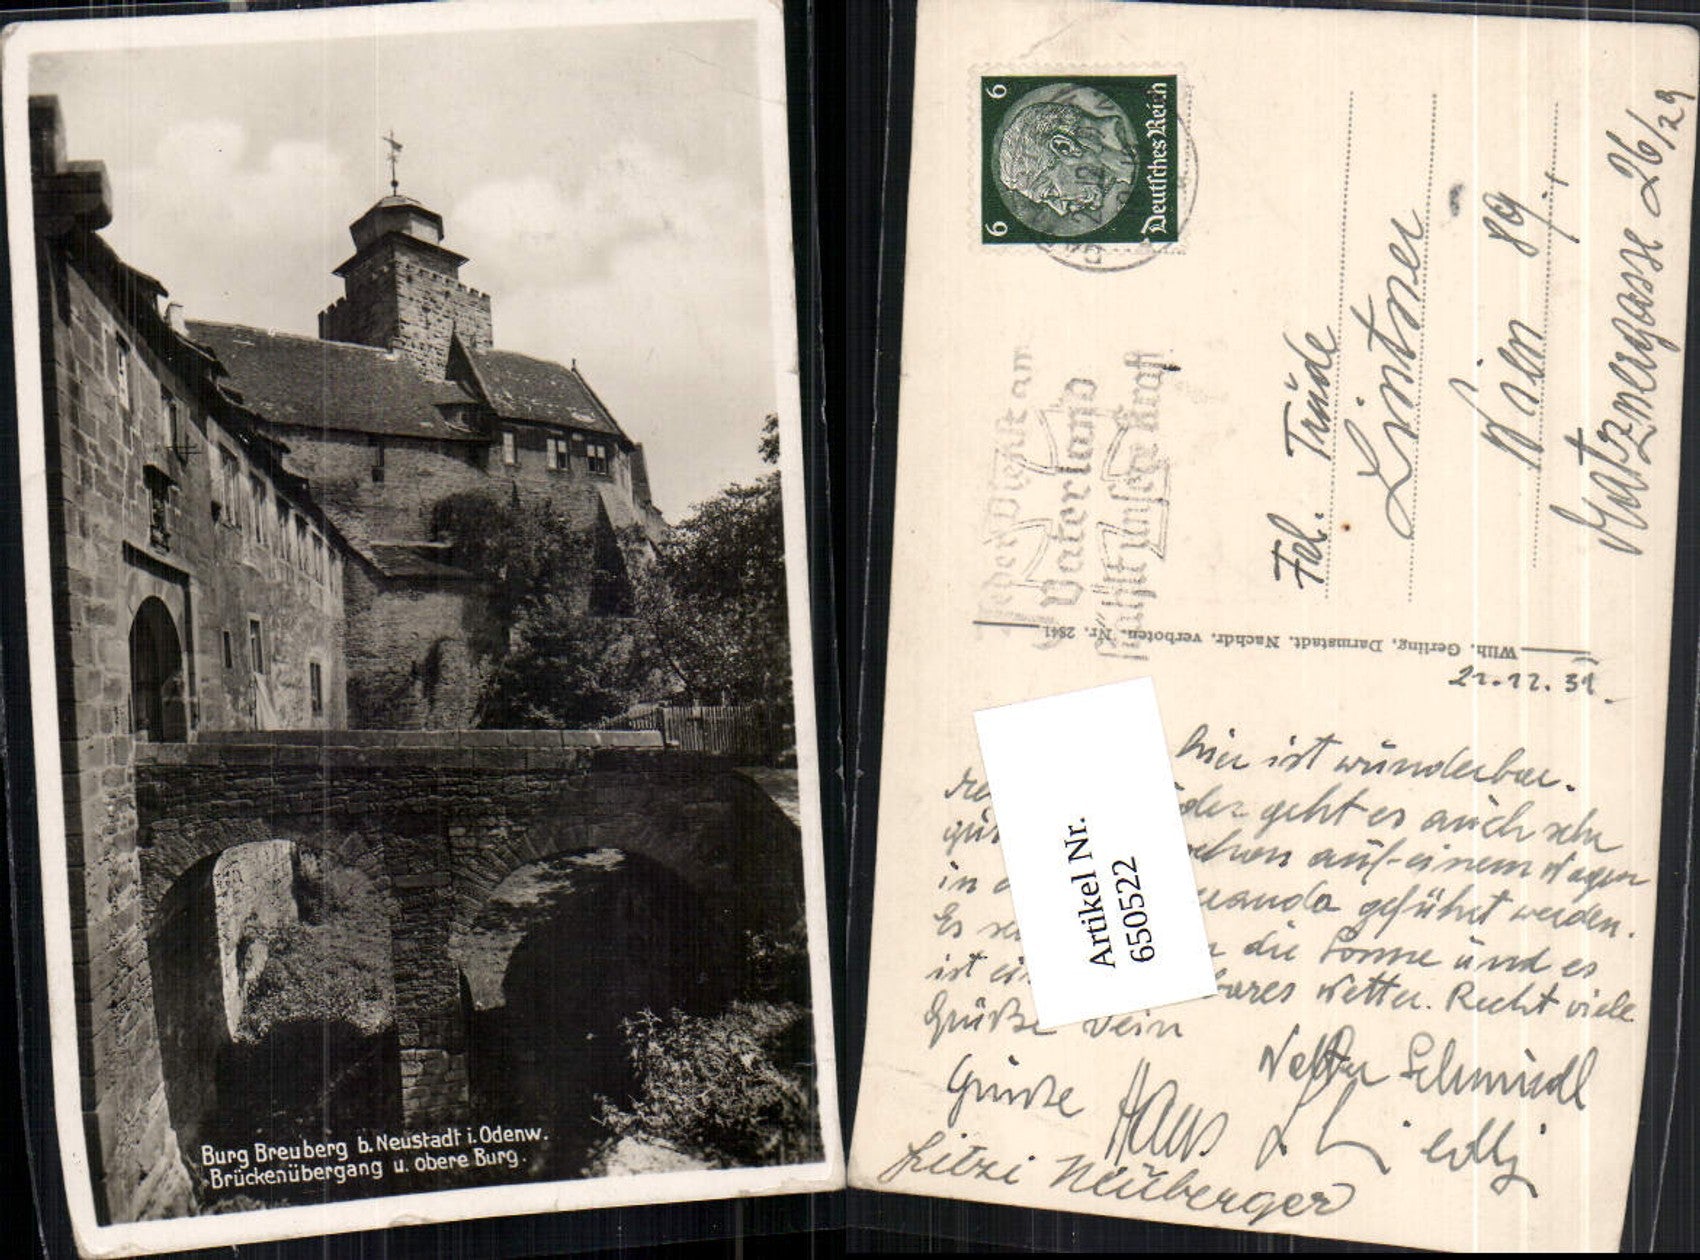 Burg Breuberg b. Neustadt i. Odenw.
Brückenübergang u. obere Burg.
6 6
Deutsches Reich
Jeder Dienst am
Vaterland
stählt unsere Kraft
Frl. Trude
Lintner
Wien 89.
Matznergasse 26/29
Wilh. Gerling, Darmstadt. Nachdr. verboten. Nr. 2841
21.12.39.
hier ist wunderbar.
geht es auch sehr
gut
in auf einem Wagen
geführt werden.
Es die Sonne und es
ist ein Wetter. Recht viele
Grüße Dein
Walter Schmiedl
Grüße Hans
Fritzi Neuberger
Artikel Nr.
650522